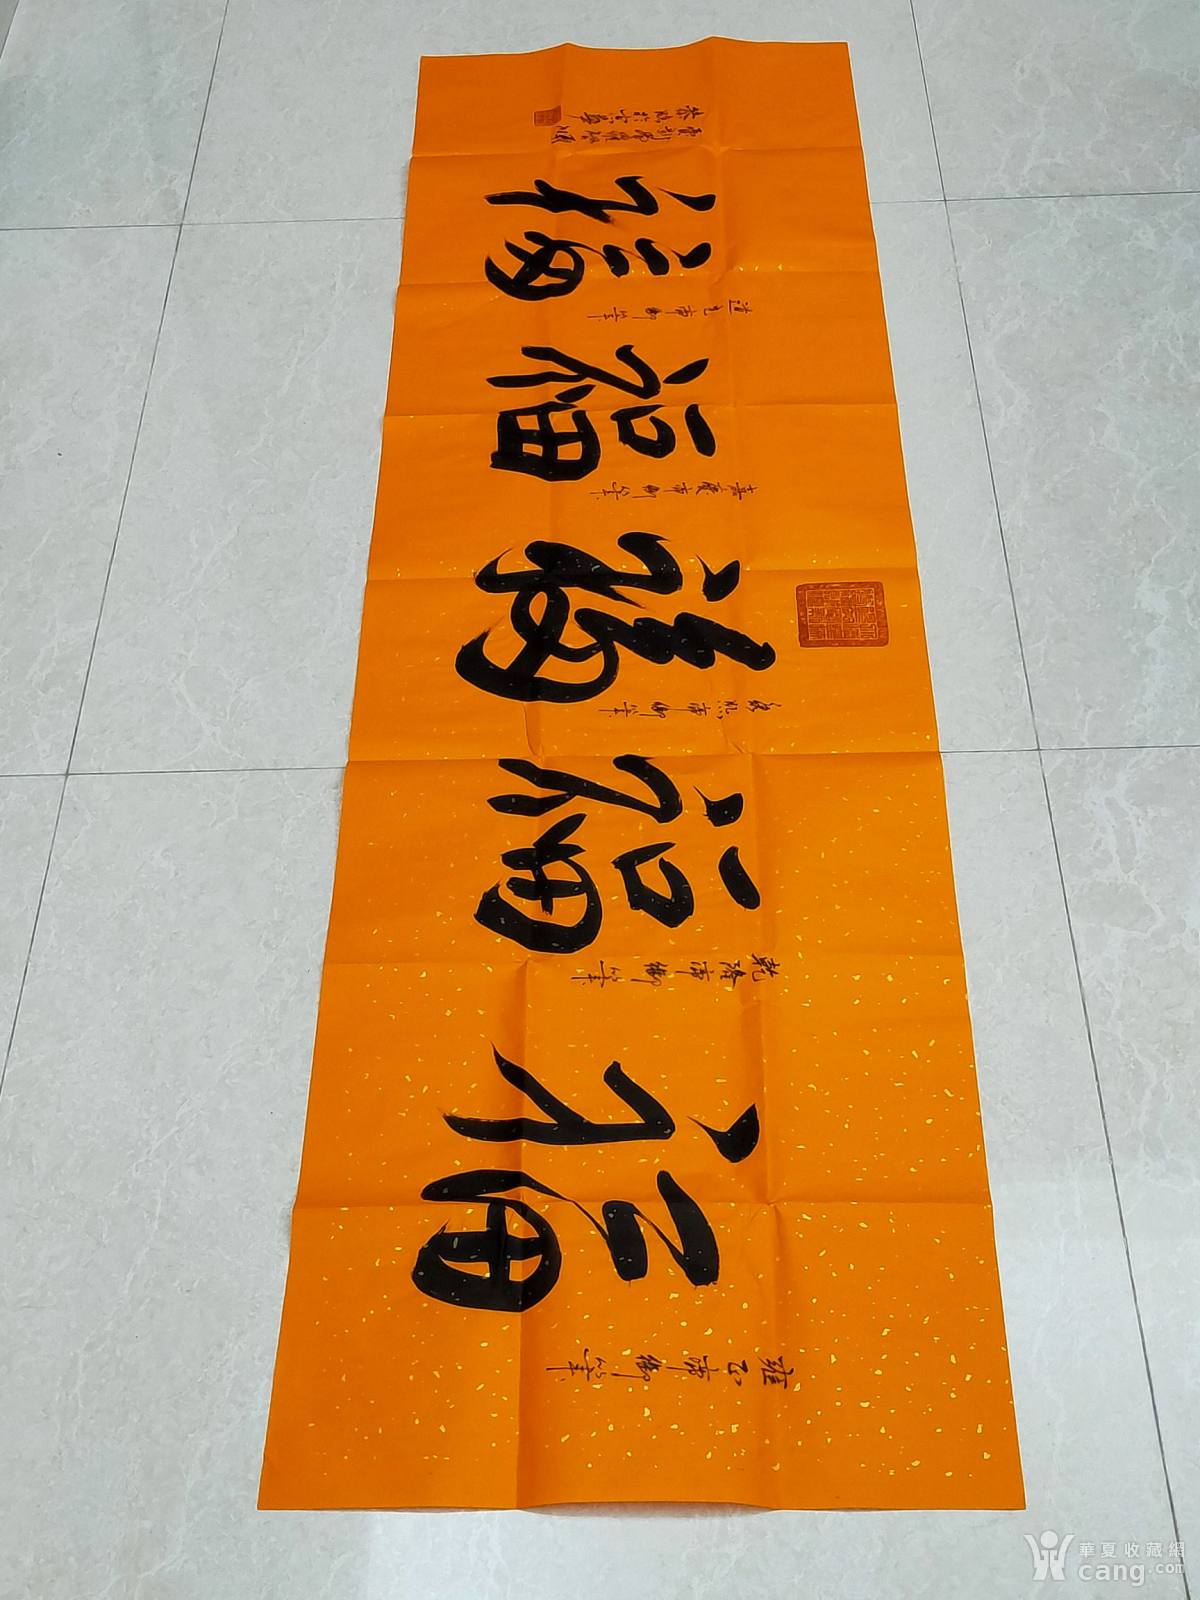 雍正帝御筆
福
乾隆帝御筆
福
康熙帝御筆
福
嘉慶帝御筆
福
道光帝御筆
福
華夏收藏網
cang.com